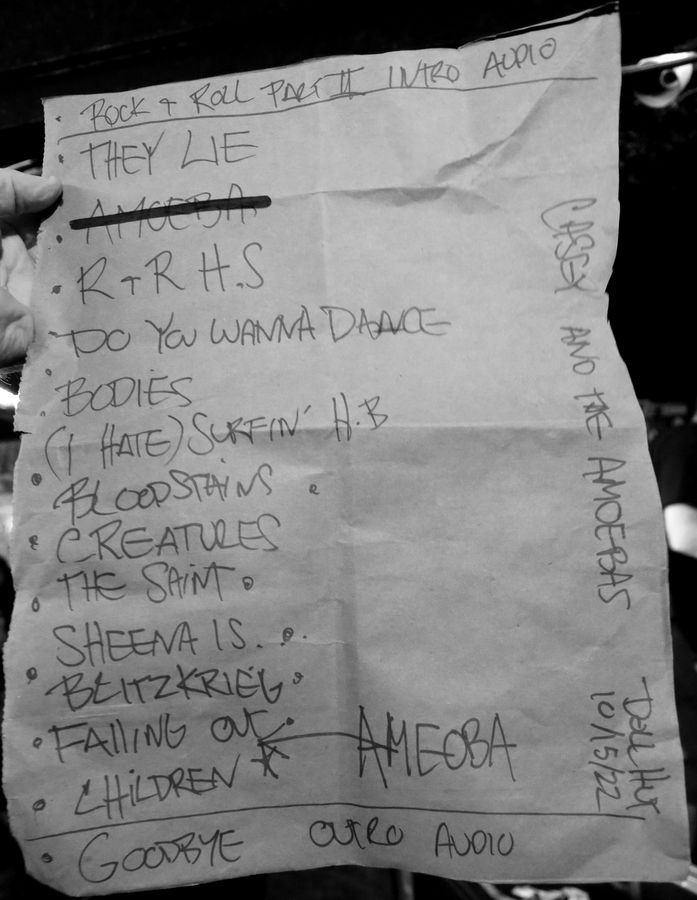 ROCK + ROLL PART II INTRO AUDIO
THEY LIE
AMOEBA
R + R H.S
DO YOU WANNA DANCE
BODIES
(I HATE) SURFIN' H.B
BLOODSTAINS
CREATURES
THE SAINT
SHEENA IS...
BLITZKRIEG
FALLING OUT
AMEOBA
CHILDREN
GOODBYE OUTRO AUDIO
CASSEY AND THE AMOEBAS
DELL HUT
10/15/22